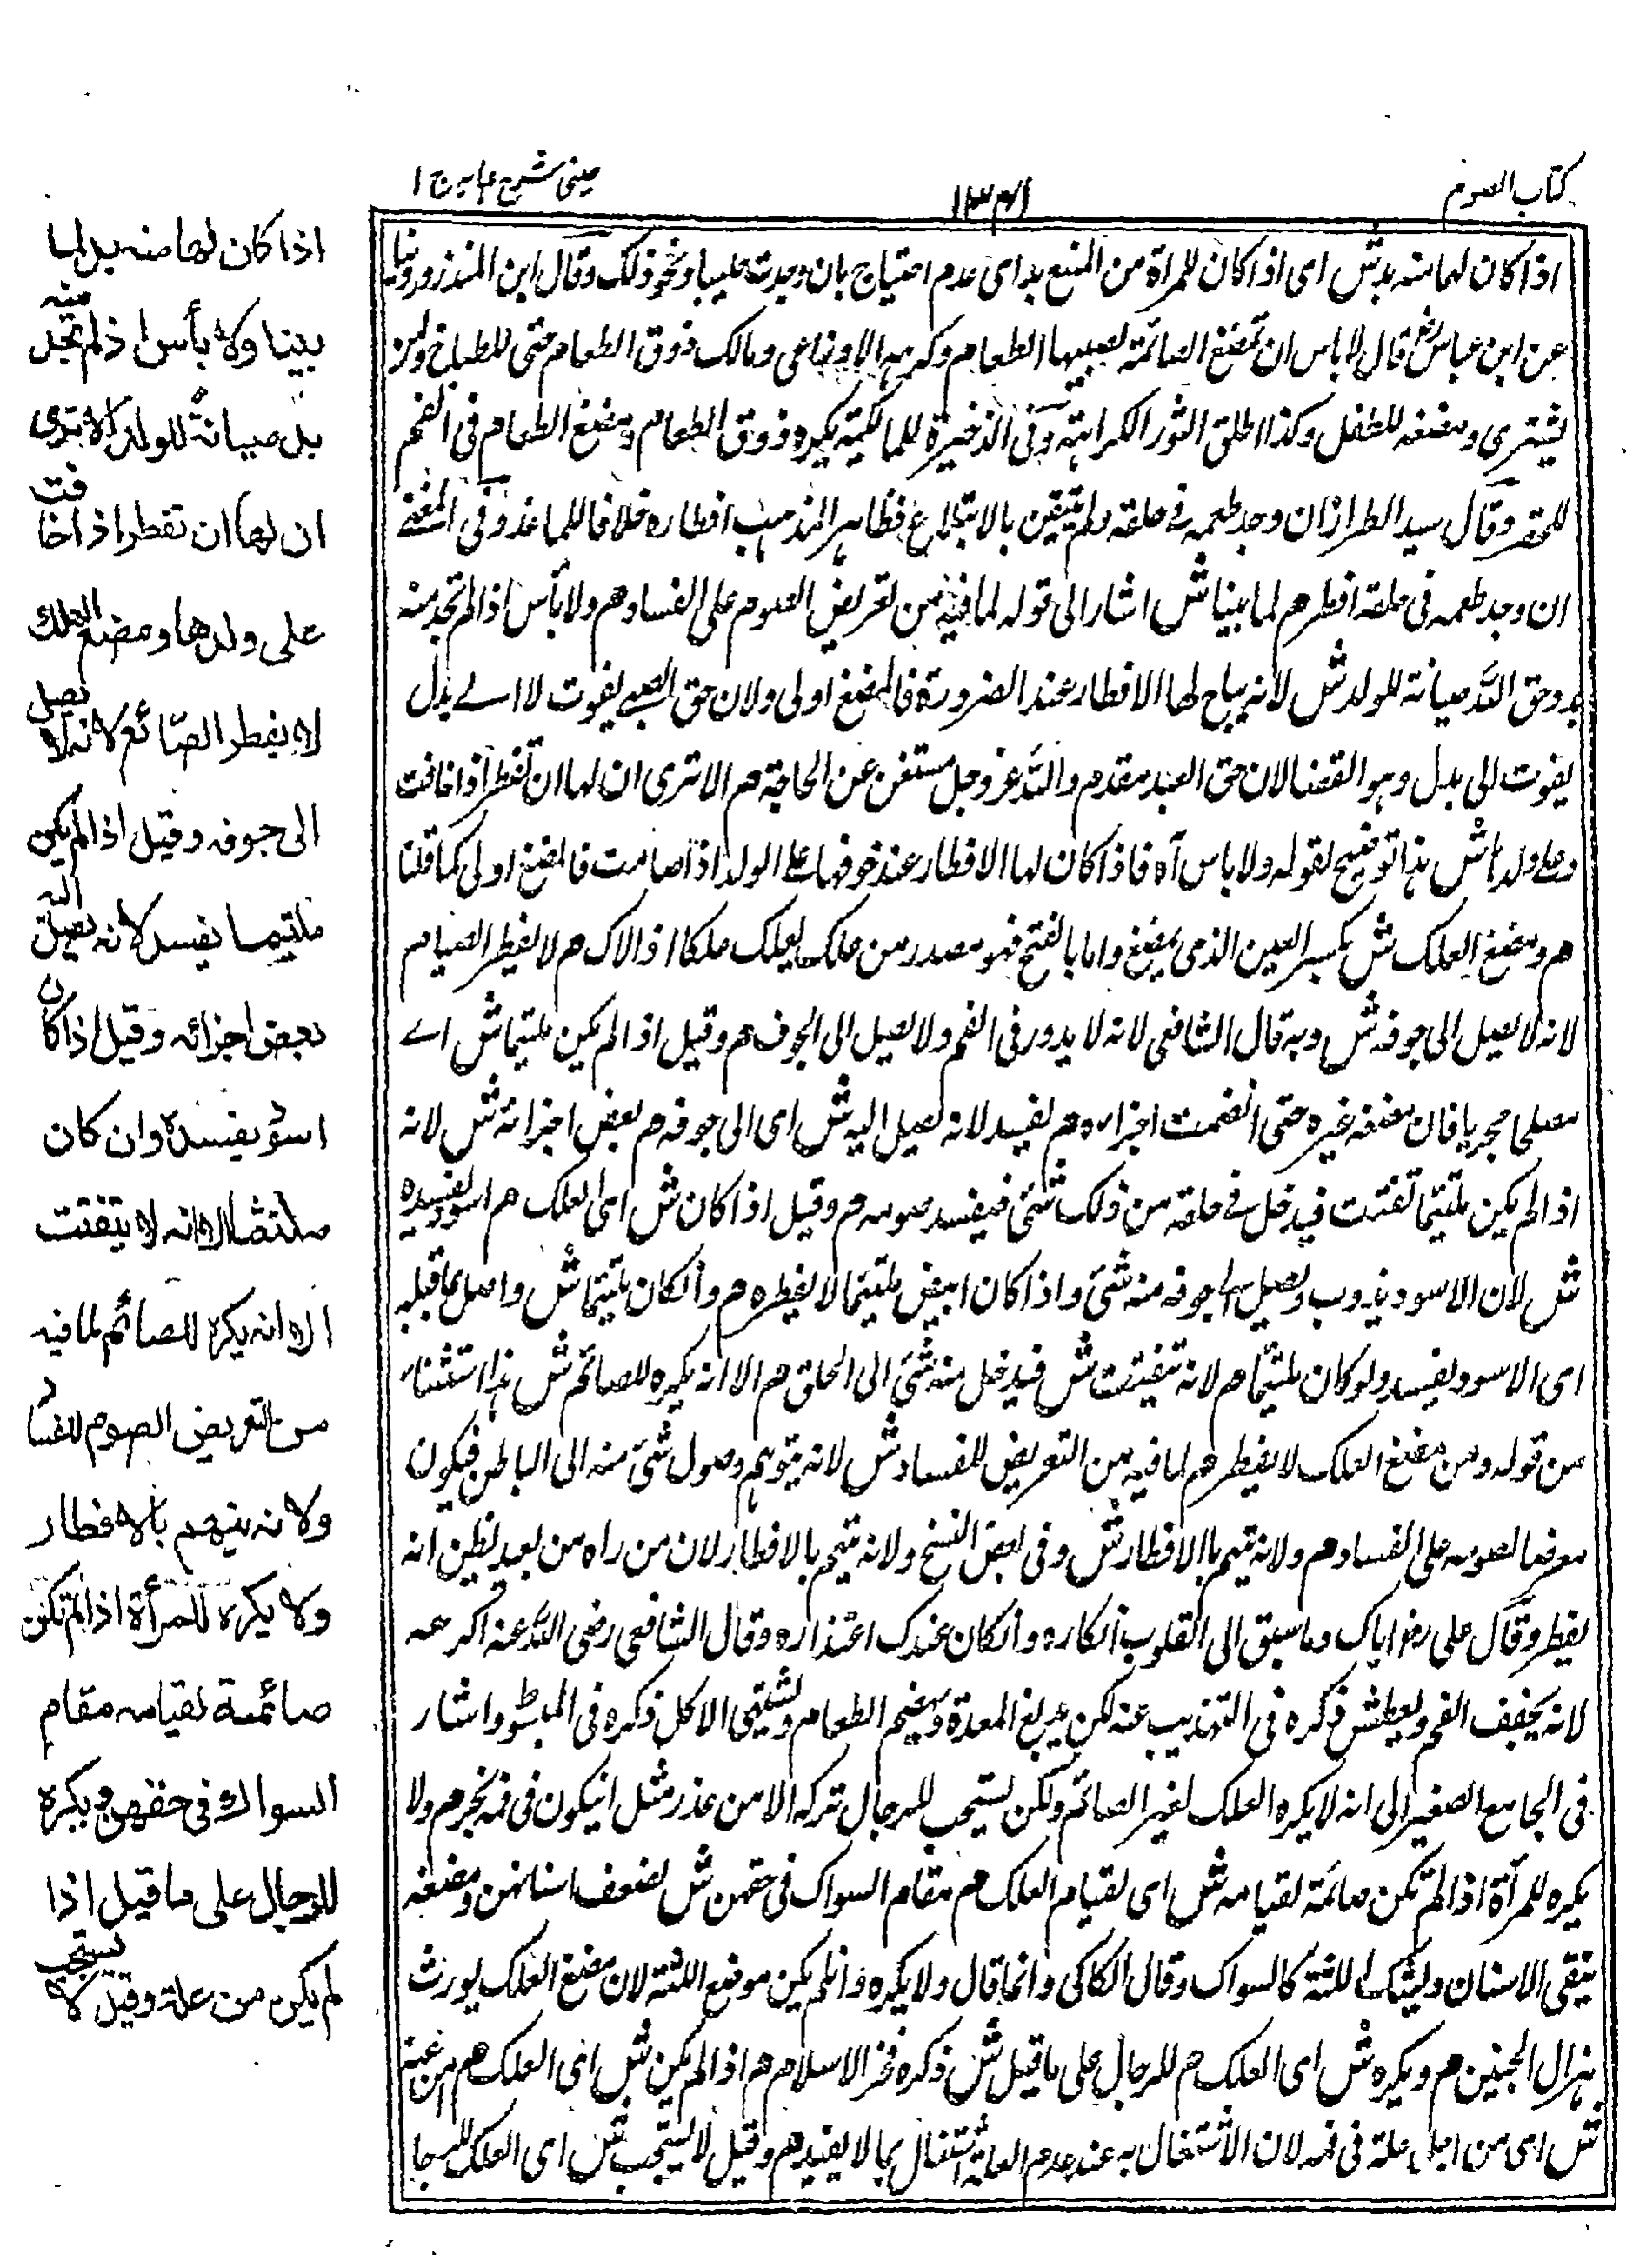 كتاب الصوم
١٣٤١
عينى شرح هداية ج ١
اذا كان لها منه بد ش اى اذا كان للمرأة من المضغ بد اى عدم احتياج بان وجدت حليبا ونحو ذلك وقال ابن المنذر وروينا
عن ابن عباس رض قال لا باس ان تمضغ الصائمة لصبيها الطعام وكرهه الاوزاعى ومالك ذوق الطعام حتى للطباخ ولمن
يشترى ومضغه للطفل وكذا اطلق الثور الكراهته وفى الذخيرة للمالكية يكره ذوق الطعام ومضغ الطعام فى الفم
وقال سيد الطراز ان وجد طعمه فى حلقه ولم يتيقن بالابتلاع فظاهر المذهب افطاره خلافا وفى المغنى
ان وجد طعمه فى حلقه افطر هم لما بينا ش اشار الى قوله لما فيه من تعريض الصوم على الفساد هم ولا بأس اذا لم تجد منه
بد وحق الله صيانة للولد ش لانه يباح لها الافطار عند الضرورة فالمضغ اولى ولان حق الصبى يفوت لا الى بدل
يفوت الى بدل وهو القضا لان حق العبد مقدم والله عز وجل مستغن عن الحاجة هم الا ترى ان لها ان تفطر اذا خافت
على ولدها ش هذا توضيح لقوله ولا باس آه فاذا كان لها الافطار عند خوفها على الولد اذا صامت فالمضغ اولى كما قلنا
هم ومضغ العلك ش بكسر العين الذى يمضغ واما بالفتح فهو مصدر من علك يعلك علكا اذا لاك هم لا يفطر الصيام
لانه لا يصل الى جوفه ش وبه قال الشافعى لانه لا يدور فى الفم ولا يصل الى الجوف هم وقيل اذا لم يكن ملتئما ش اے
مصلحا مجربا فان مضغه غيره حتى انضمت اجزاؤه هم يفسد لانه يصل اليه ش اى الى جوفه هم بعض اجزائه ش لانه
اذا لم يكن ملتئما تفتت فيدخل فى حلقه من ذلك شئ فيفسد صومه هم وقيل اذا كان ش اى العلك هم اسود يفسده
ش لان الاسود يذوب ويصل الى جوفه منه شئ واذا كان ابيض ملتئما لا يفطره هم وانكان ملتئما ش واصل بما قبله
اى الاسود يفسد ولو كان ملتئما هم لانه تتفتت ش فيدخل منه شئ الى الحلق هم الا انه يكره للصائم ش هذا استثناء
من قوله ومن مضغ العلك لا يفطر هم لما فيه من التعريض للفساد ش لانه يتوهم وصول شئ منه الى الباطن فيكون
معرضا لصومه على الفساد هم ولانه يتهم بالافطار ش وفى بعض النسخ ولانه يتهم بالافطار لان من راه من بعيد يظن انه
يفطر وقال على رض اياك وما سبق الى القلوب انكاره وانكان عندك اعتذاره وقال الشافعى رضى الله عنه اكرهه
لانه يجفف الفم ويعطش ذكره فى التهذيب عنه لكن يدبغ المعدة ويهضم الطعام ويشتهى الاكل ذكره فى المبسوط واشار
فى الجامع الصغير الى انه لا يكره العلك لغير الصائم ولكن يستحب للرجال تركه الا من عذر مثل انيكون فى فمه بخر هم ولا
يكره للمرأة اذا لم تكن صائمة لقيامه ش اى لقيام العلك هم مقام السواك فى حقهن ش لضعف اسنانهن ومضغه
ينقى الاسنان ويشد اللثة كالسواك وقال الكاكى وانما قال ولا يكره وانلم يكن موضع اللثة لان مضغ العلك يورث
هزال الجنبين هم ويكره ش اى العلك هم للرجال على ما قيل ش ذكره فخر الاسلام هم اذا لم يكن ش اى العلك هم من علة
ش اى من اجل علة فى فمه لان الاشتغال به عند عدم العلة اشتغال بما لا يفيد هم وقيل لا يستحب ش اى العلك للرجا
اذا كان لها منه بد لما
بينا ولا بأس اذا لم تجد منه
بد صيانة للولد الا ترى
ان لها ان تفطر اذا خافت
على ولدها ومضغ العلك
لا يفطر الصائم لانه لا يصل
الى جوفه وقيل اذا لم يكن
ملتئما يفسد لانه يصل اليه
بعض اجزائه وقيل اذا كان
اسود يفسده وان كان
ملتئما لانه لا يتفتت
الا انه يكره للصائم لما فيه
من التعريض الصوم للفساد
ولانه يتهم بالافطار
ولا يكره للمرأة اذا لم تكن
صائمة لقيامه مقام
السواك فى حقهن ويكره
للرجال على ما قيل اذا
لم يكن من علة وقيل لا يستحب